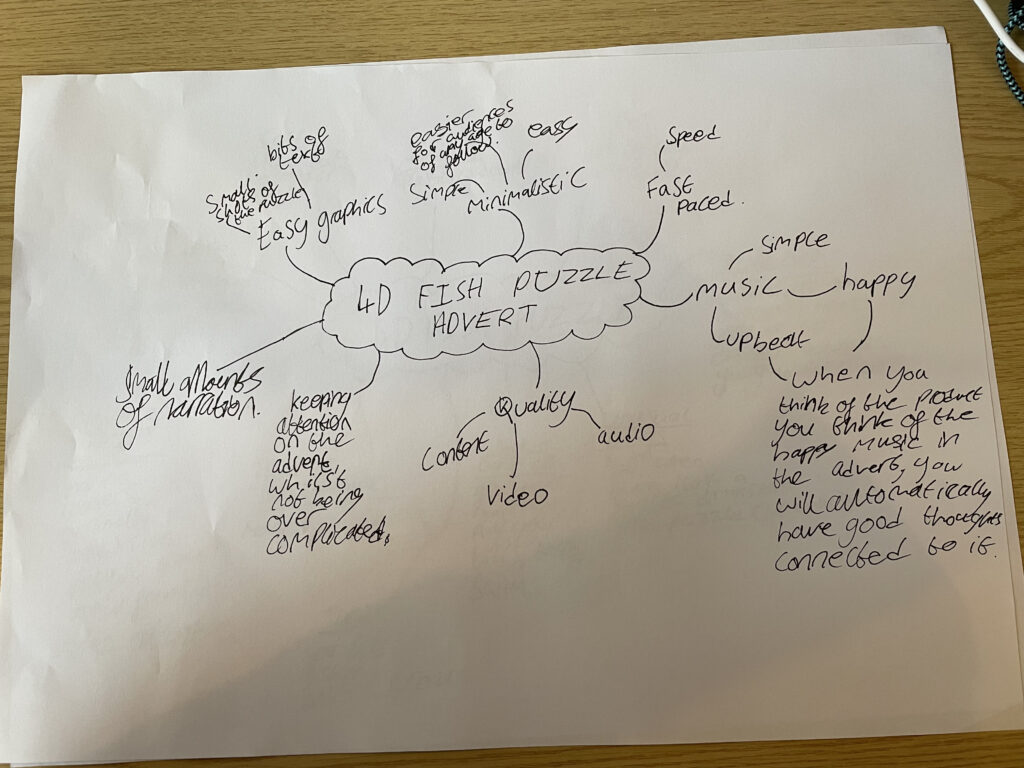 4D FISH PUZZLE
ADVERT
bits of
text
Small
shots of
the puzzle
Easy graphics
easier
for audiences
of any age to
follow.
easy
Simple
Minimalistic
Speed
Fast
paced.
Simple
music
happy
upbeat
When you
think of the product
you think of the
happy music in
the advert, you
will automatically
have good thoughts
connected to it.
Quality
content
audio
video
keeping
attention
on the
advert
whilst
not being
over
complicated.
Small amounts
of narration.